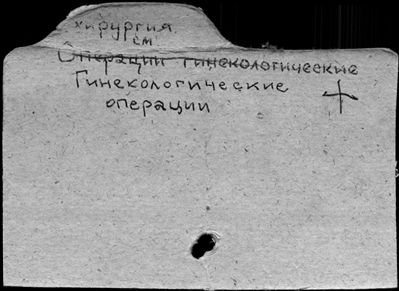 хирургия.
см.
Операции гинекологические
Гинекологические
операции